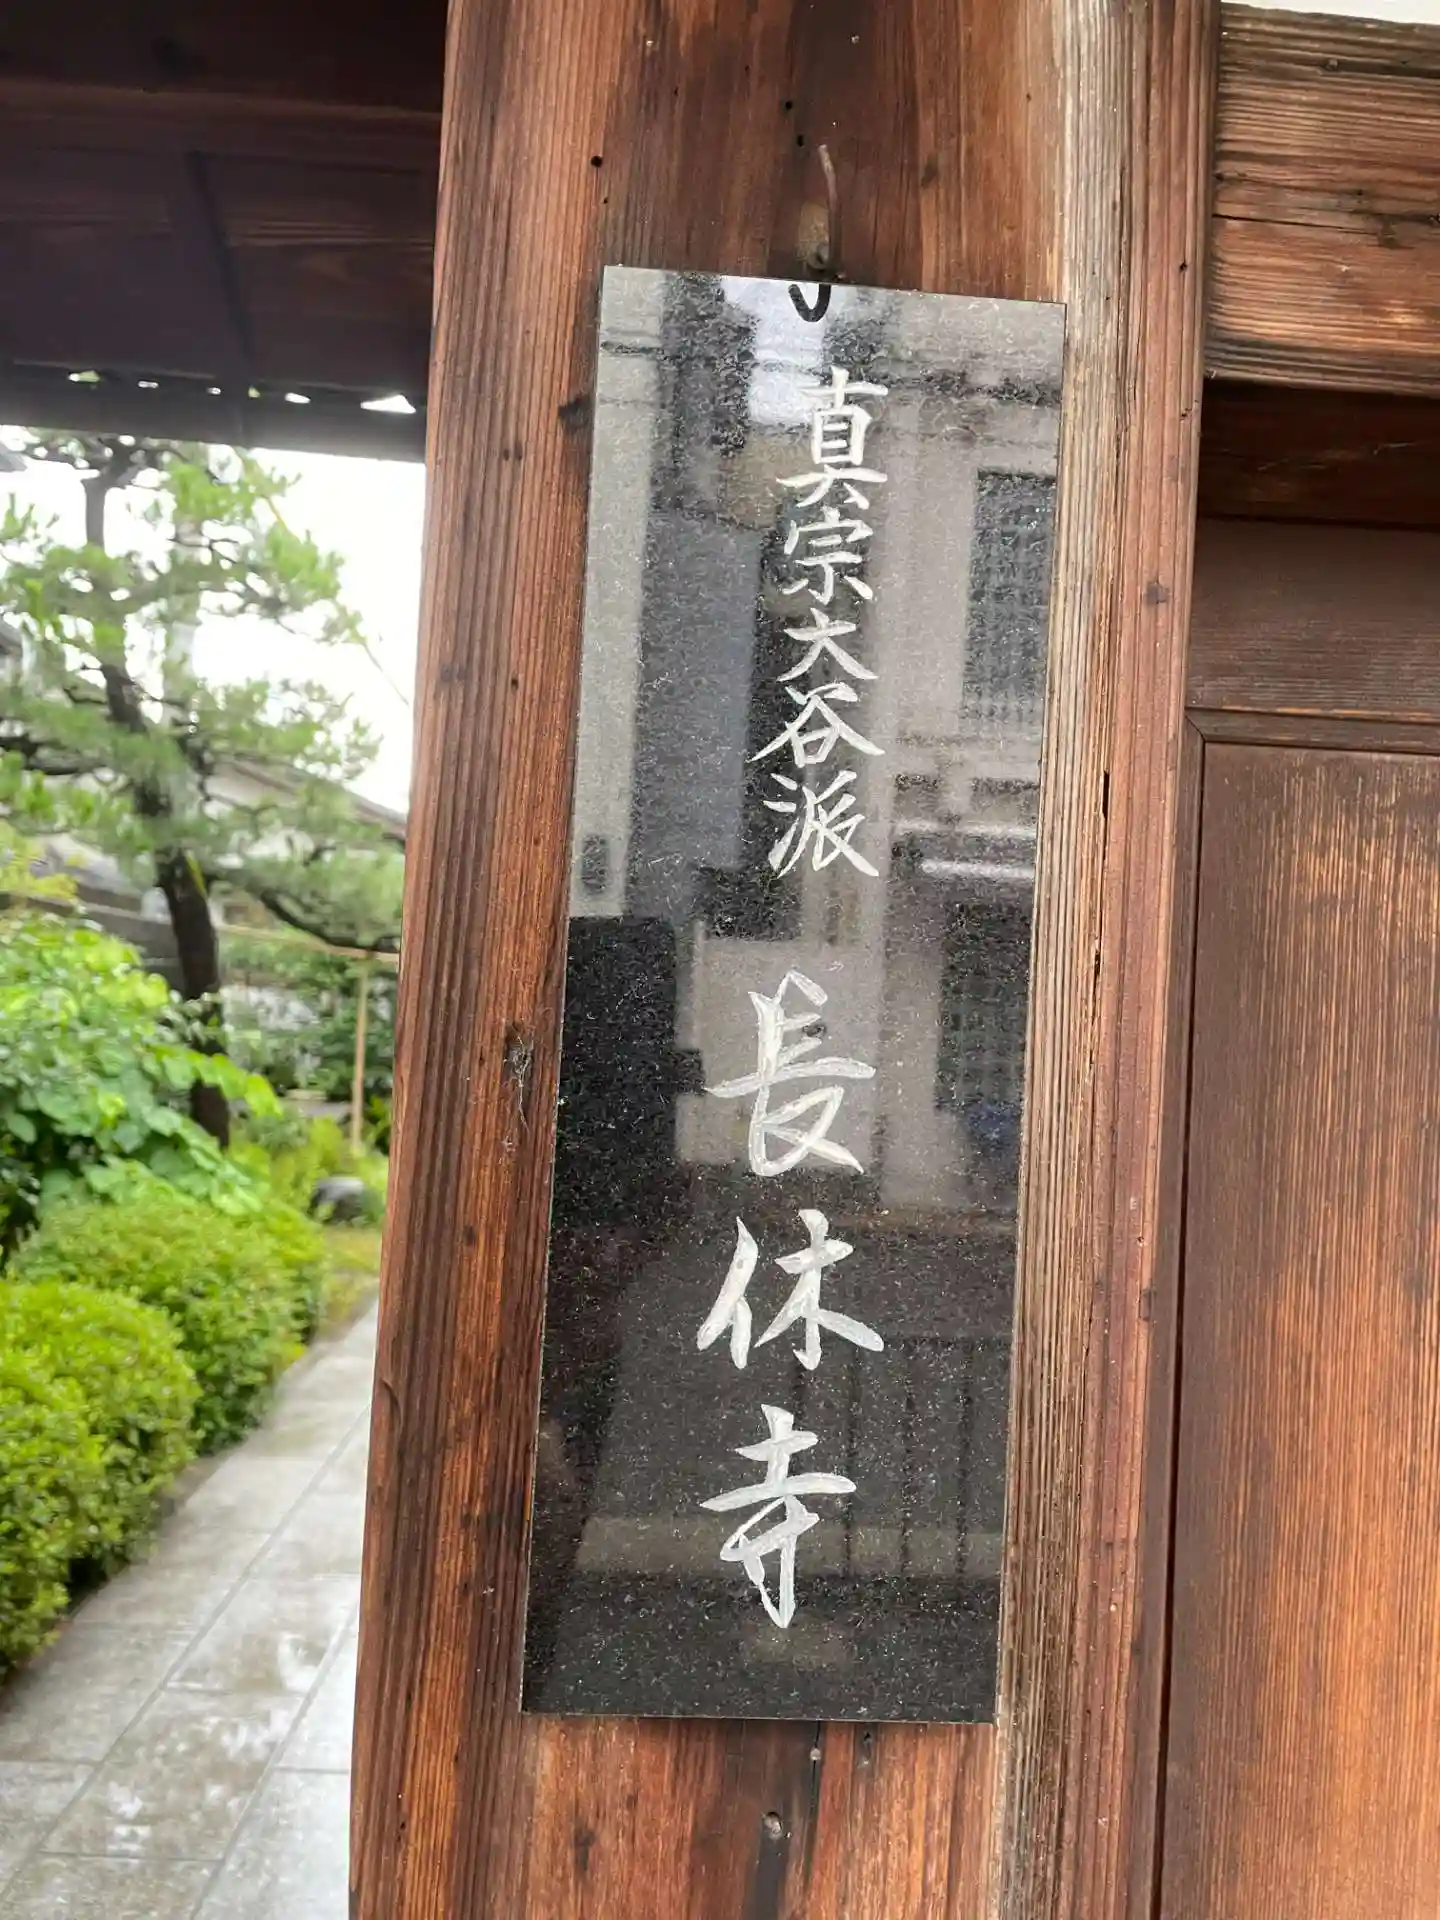 真宗大谷派 長休寺